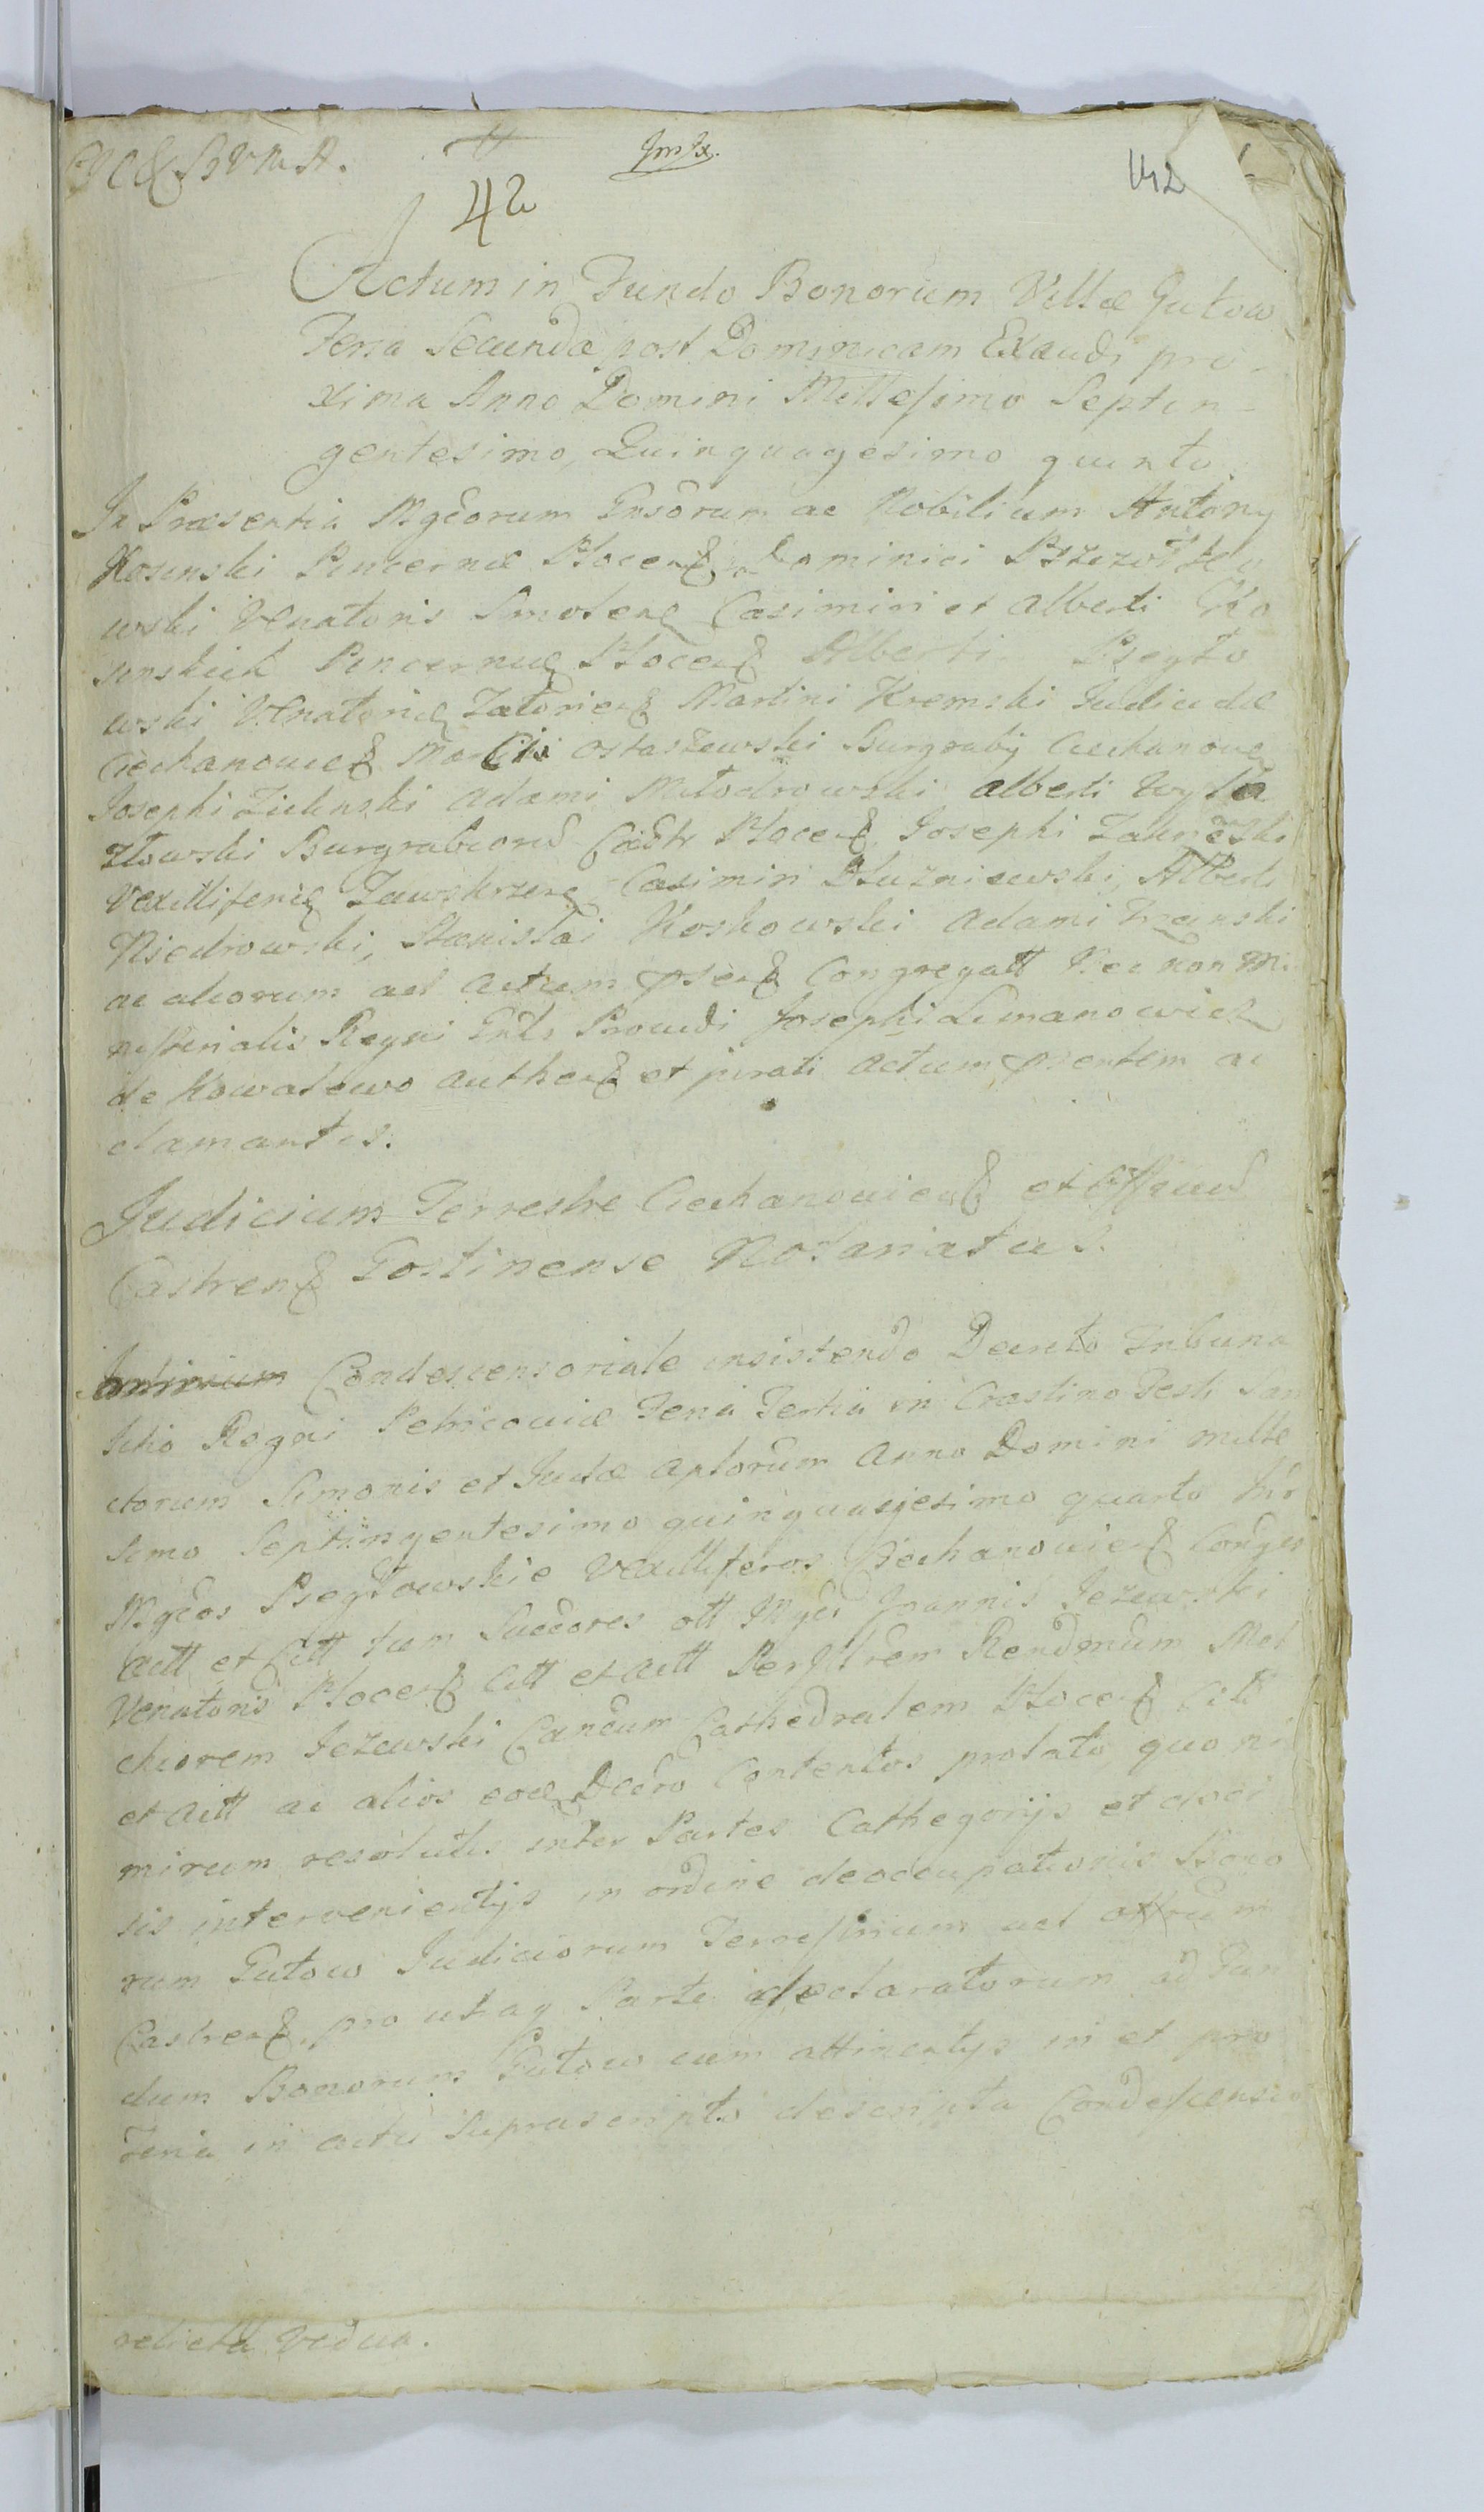 42
142
Actum in Fundo Bonorum Villæ Gutow
Feria Secunda post Dominicam Exaudi pro
xima Anno Domini Millesimo Septin-
gentesimo Quinquagesimo quinto.
In Præsentia Mgcorum Gnsorum ac Nobilium Antony
Kosinski Pincernæ Plocen Dominici
wski Venatoris Smolen Casimiri et Alberti Ko
sinskich Pincernic Plocen Alberti Psczyto
wski Venatoric Zatorien Martini Kremski Judicidæ
Ciechanovien Ostaszewski Burgraby Ciechanovien
Josephi Zielinski Adami Młodrowski Alberti
Burgrabiorum Castr Plocen Josephi
Vexilliferic Zawskrzen Casimiri Dłuzniewski, Alberti
Niedrowski, Stanislai Koskowski Adami
ac aliorum ad actum psen Congregatt Nec non Mi
nisterialis Regni Gnlis Providi Josephi Limanowicz
de Kowalewo authen et jurati actum psentem ac
clamantis.
Judicium Terrestre Ciechanovien et Officium
Castren Gostinense Notariatus.
Condescensoriale insistendo Decreto Tribuna
litio Regni Petricoviæ Feria Tertia in Crastino Festi San
ctorum Simonis et Judæ Aplorum Anno Domini Mille
simo Septingentesimo quinquagesimo quarto Intr
Mgcos Psczytowskie Vexilliferos Ciechanovien Conjuges
Actt et Citt tum Succores olt Mgci Joannis Jezewski
Venatoris Plocen Citt et Actt Perillrem Rendmum Mel
chiorem Jezewski Canoum Cathedralem Plocen Citt
et Actt ac alios eod Decro Contentos prolato, quo ni
mirum resolutis inter Partes Cathegorijs et
sis intervenientijs in ordine deoccupationis Bono
rum Gutow Judiciorum Terrestrium ad officium
Castren pro utraq Parte declaratorum ad Fun
dum Bonorum Gutow cum attinentijs in et pro
Feria in actu suprascripto descripta Condescensio
relicta vidua.